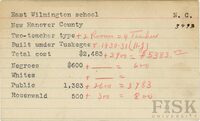 East Wilmington school N. C.
New Hanover County
Two-teacher type + 2 Room = 4 Teacher
Built under Tuskegee + 1930-31
Total cost $2,483 + 2900 = $5383.
Negroes $600 + =
Whites +
Public 1,383 + 2400 = 3783
Rosenwald 500 + 300 = 800
FISK
UNIVERSITY